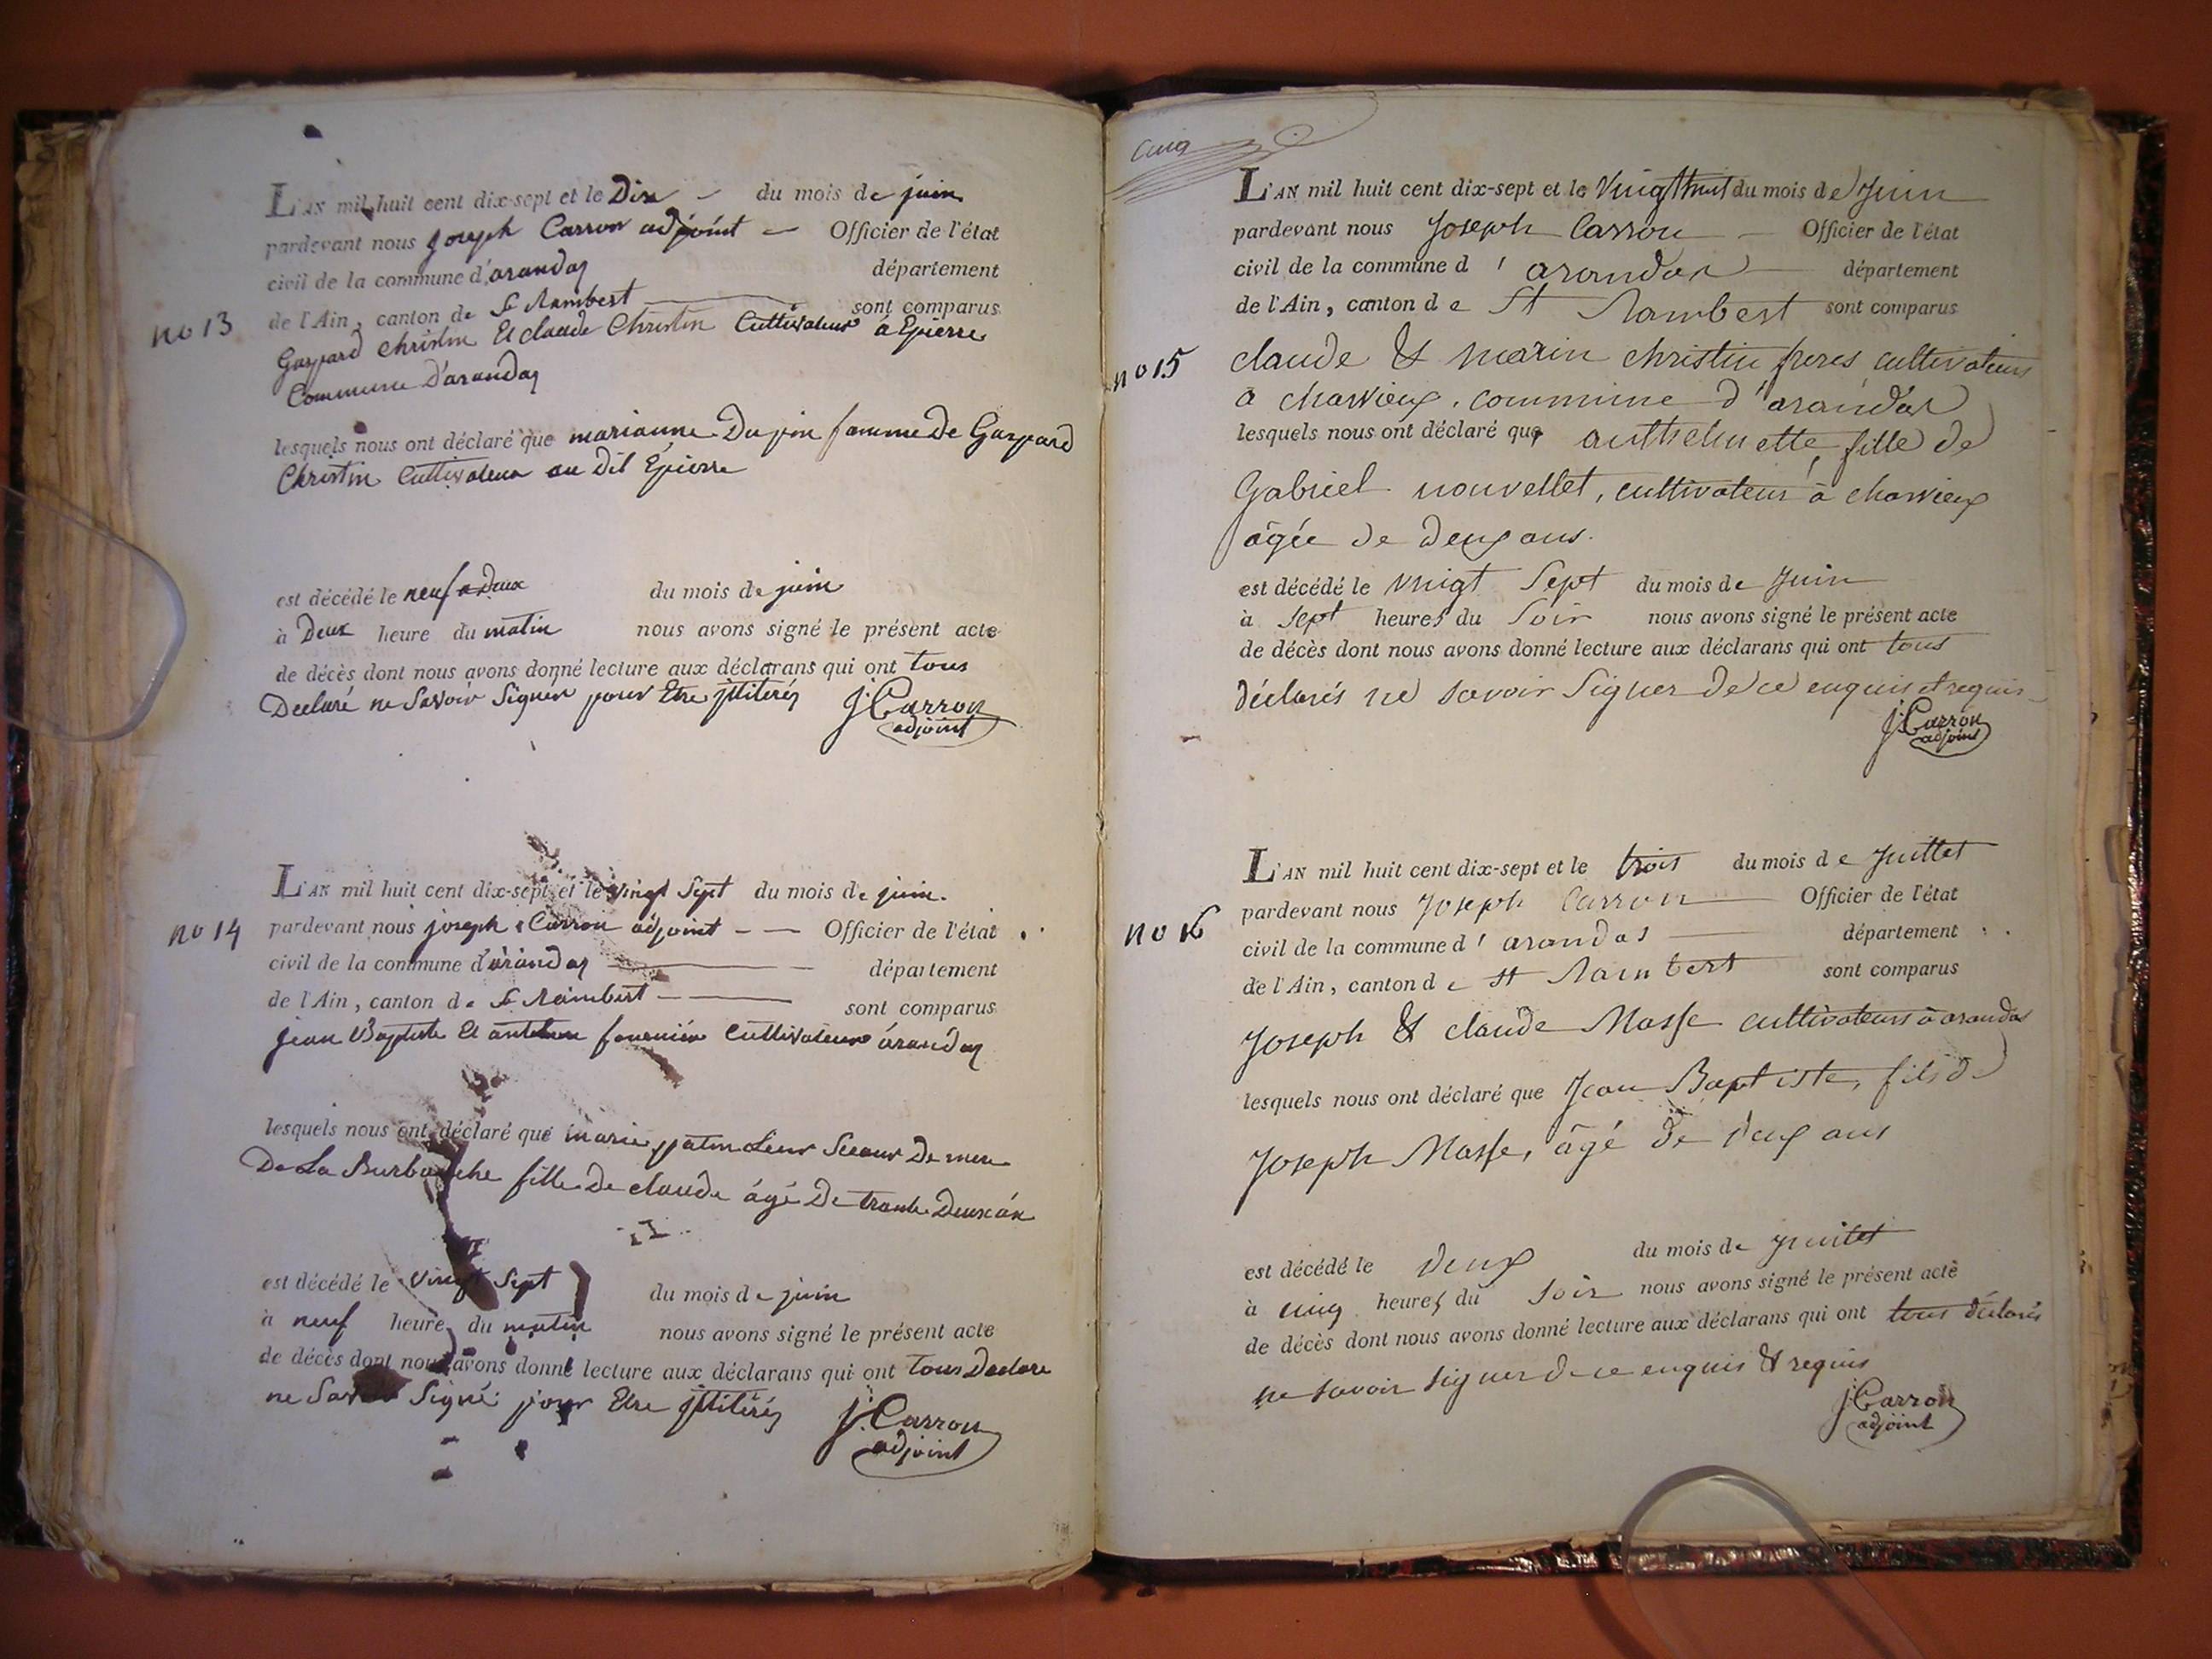 L'AN mil huit cent dix-sept et le Dix du mois de juin
pardevant nous joseph Carron adjoint Officier de l'état
civil de la commune d'arandas département
de l'Ain, canton de St Rambert sont comparus
no 13
Gaspard christin Et claude Christin Cultivateurs á Epierre
Commune D'arandas
lesquels nous ont déclaré que marianne Dupin famme De Gaspard
Christin Cultivateur au dit Epierre
est décédé le neuf a Deux du mois de juin
à Deux heure du matin nous avons signé le présent acte
de décès dont nous avons donné lecture aux déclarans qui ont tous
Declaré ne Savoir Signér pour Etre jlliterés
J: Carron
adjoint
L'AN mil huit cent dix-sept et le vingt Sept du mois de juin.
no 14
pardevant nous joseph Carron adjoint Officier de l'état
civil de la commune d'arandas département
de l'Ain, canton de St Rambert sont comparus
jean Baptiste Et fournier Cultivateurs árandas
lesquels nous ont déclaré que marie patin Leur Seeaur De mere
De La Burbanche fille De claude ágé De trante Deux án
est décédé le vingt Sept du mois de juin
à neuf heure du matin nous avons signé le présent acte
de décès dont nous avons donné lecture aux déclarans qui ont Tous Declare
ne Savoir Signé: pour Etre jlliterés
J: Carron
adjoint
Cinq
L'AN mil huit cent dix-sept et le Vingt huit du mois de Juin
pardevant nous Joseph Carron Officier de l'état
civil de la commune d'arandas département
de l'Ain, canton de St Rambert sont comparus
no 15
claude & marin christin freres cultivateurs
a charvieux, commune d'arandas
lesquels nous ont déclaré que anthelmette, fille de
Gabriel nouvellet, cultivateur à charvieux
âgée de deux ans.
est décédé le vingt Sept du mois de Juin
à Sept heures du Soir nous avons signé le présent acte
de décès dont nous avons donné lecture aux déclarans qui ont tous
déclarés ne savoir Signer de ce enquis et requis
J: Carron
adjoint
L'AN mil huit cent dix-sept et le trois du mois de Juillet
no 16
pardevant nous Joseph Carron Officier de l'état
civil de la commune d'arandas département
de l'Ain, canton de St Rambert sont comparus
Joseph & claude Masse cultivateurs à arandas
lesquels nous ont déclaré que Jean Baptiste, fils de
Joseph Masse, âgé de deux ans
est décédé le deux du mois de Juillet
à cinq heures du Soir nous avons signé le présent acte
de décès dont nous avons donné lecture aux déclarans qui ont tous déclarés
ne savoir signer de ce enquis & requis
J: Carron
adjoint